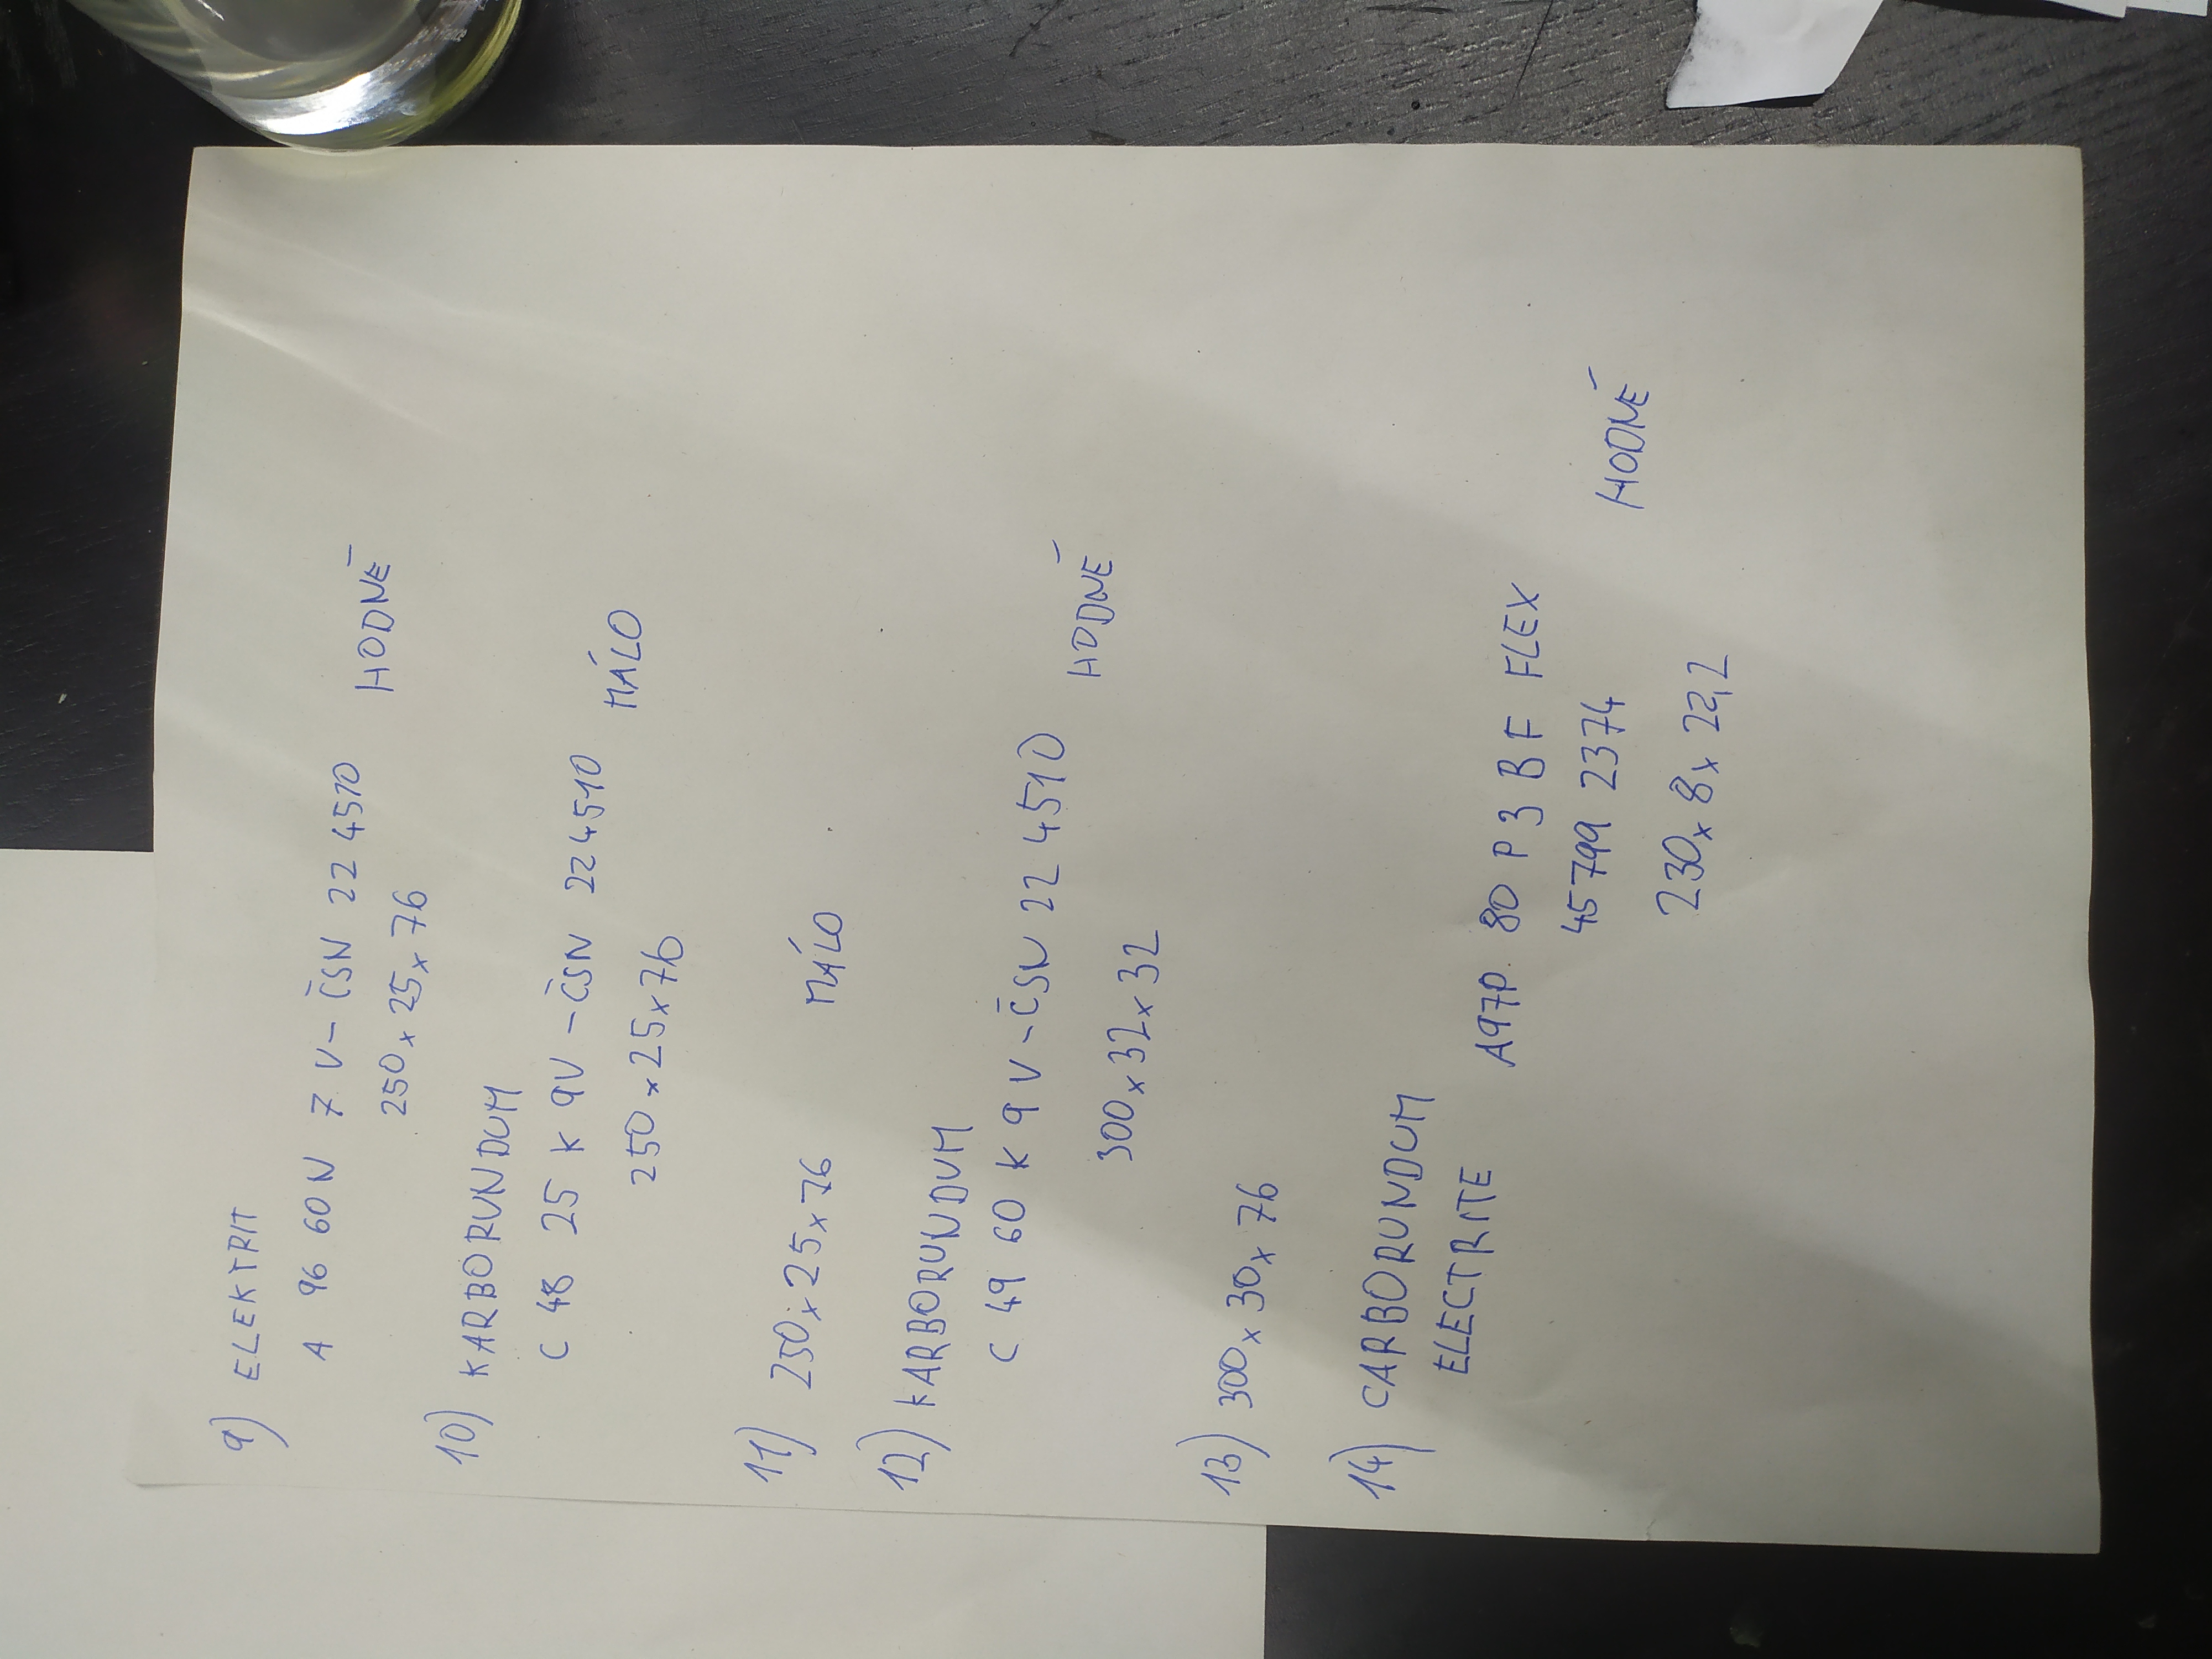 9) ELEKTRIT
A 96 60 N 7 V - ČSN 22 4510
HODNĚ
250 x 25 x 76
10) KARBORUNDUM
C 48 25 K 9V - ČSN 22 4510
MÁLO
250 x 25 x 76
11) 250 x 25 x 76 MÁLO
12) KARBORUNDUM
C 49 60 K 9 V - ČSN 22 4510
HODNĚ
300 x 32 x 32
13) 300 x 30 x 76
14) CARBORUNDUM
ELECTRITE A97P 80 P 3 B F FLEX
45799 2374
HODNĚ
230 x 8 x 22,2